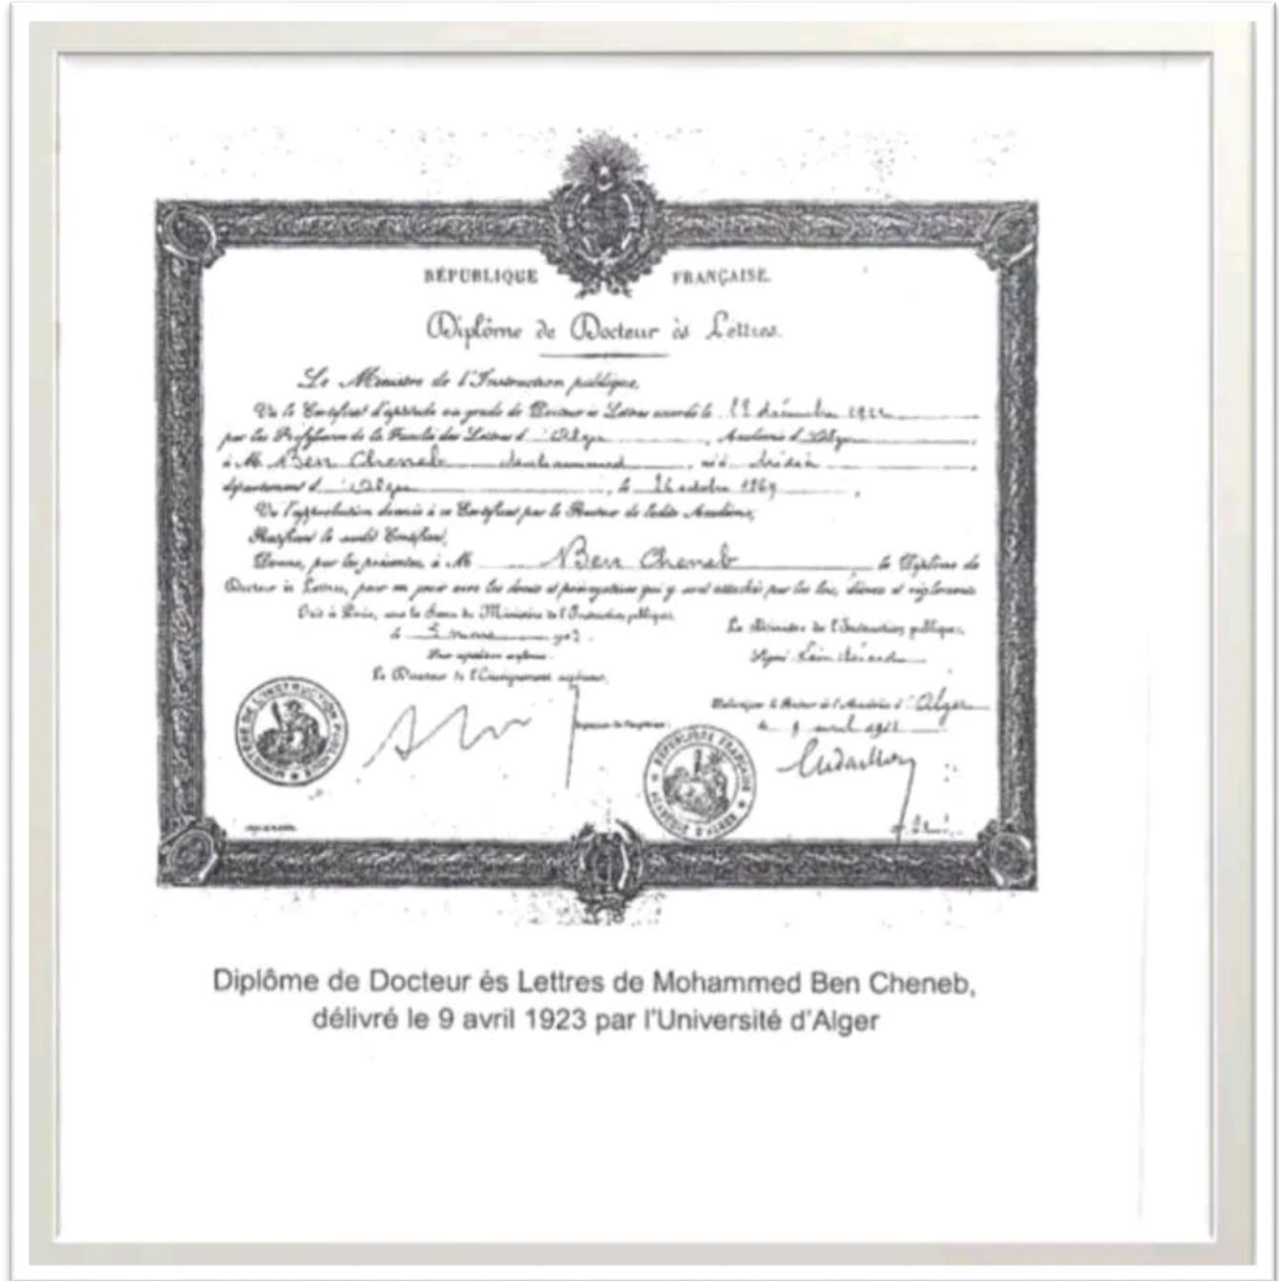 RÉPUBLIQUE FRANÇAISE.
Diplôme de Docteur ès Lettres.
Le Ministre de l'Instruction publique,
Vu le Certificat d'aptitude au grade de Docteur ès Lettres accordé le décembre
par les Professeurs de la Faculté des Lettres d'Alger, Académie d'Alger
à M. Ben Cheneb né à
département d'Alger, le 26 octobre 1869,
Vu l'approbation donnée à ce Certificat par le Recteur de ladite Académie,
Ratifiant le susdit Certificat,
Donne, par les présentes, à M. Ben Cheneb le Diplôme de
Docteur ès Lettres, pour en jouir avec les droits et prérogatives qui y sont attachés par les lois, décrets et règlements
Fait à Paris, sous le Sceau du Ministère de l'Instruction publique,
le
Le Ministre de l'Instruction publique,
Signé Léon Bérard
Le Directeur de l'Enseignement supérieur,
Délivré par le Recteur de l'Académie d'Alger
le 9 avril
MINISTÈRE DE L'INSTRUCTION PUBLIQUE
RÉPUBLIQUE FRANÇAISE
ACADÉMIE D'ALGER
Diplôme de Docteur ès Lettres de Mohammed Ben Cheneb,
délivré le 9 avril 1923 par l'Université d'Alger